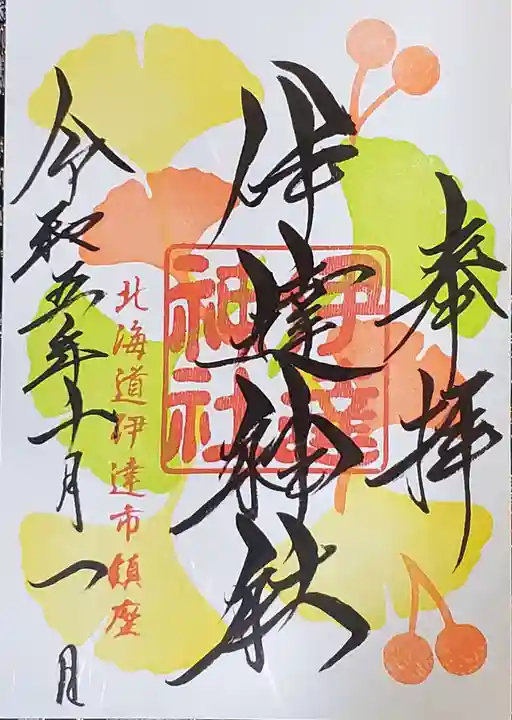 奉拝
伊達神社
伊達
神社
北海道伊達市鎮座
令和五年十一月一日